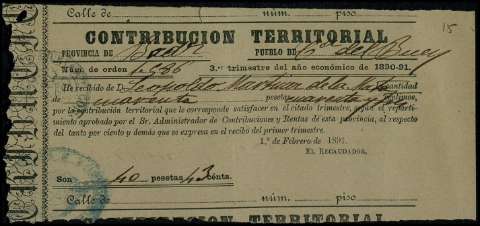 Calle de núm. piso
15
CONTRIBUCION TERRITORIAL
PROVINCIA DE PUEBLO DE
Núm. de orden 1.986 3.er trimestre del año económico de 1890-91.
He recibido de D. Leopoldo Martinez de la Mata cantidad
de cuarenta pesetas cuarenta y tres céntimos,
por la contribución territorial que le corresponde satisfacer en el citado trimestre, según el reparti-
miento aprobado por el Sr. Administrador de Contribuciones y Rentas de esta provincia, al respecto
del tanto por ciento y demás que se expresa en el recibo del primer trimestre.
1.º de Febrero de 1891.
EL RECAUDADOR,
Son 40 pesetas 43 cénts.
Calle de núm. piso
CONTRIBUCION TERRITORIAL